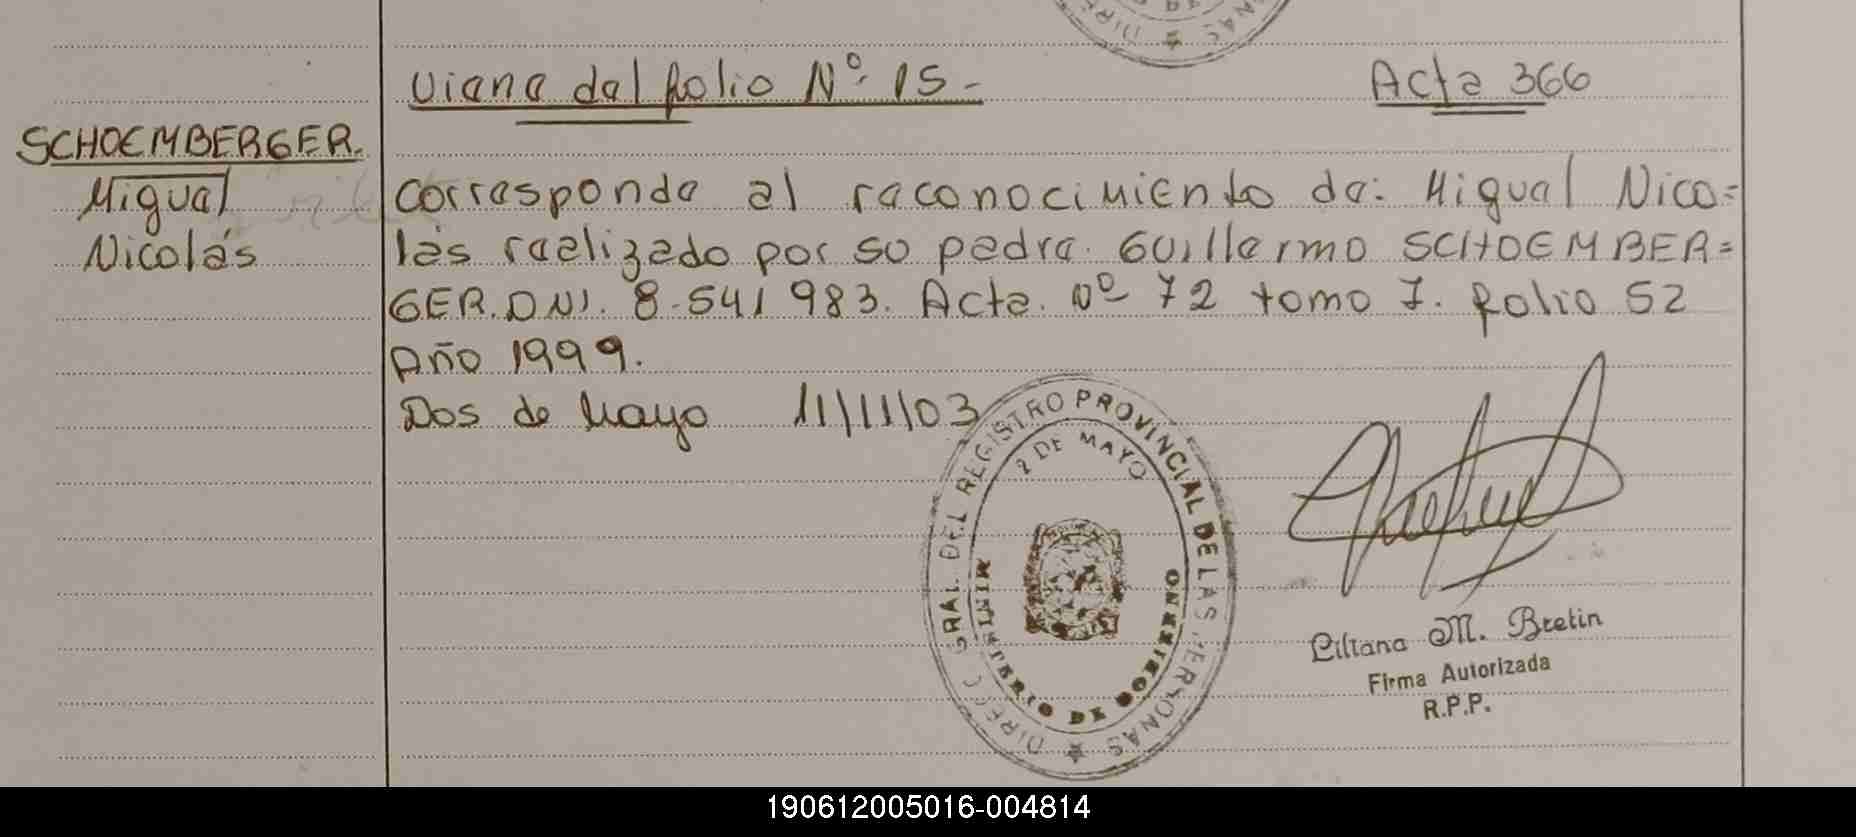 Viene del folio Nº 15.-
Acta 366
SCHOEMBERGER.
Miguel
Nicolás
Corresponde al reconocimiento de: Miguel Nico=
lás realizado por su padre. Guillermo SCHOEMBER=
GER. DNI. 8.541983. Acta. Nº 72 tomo I. folio 52
Año 1999.
Dos de Mayo 11/11/03
DIREC. GRAL. DEL REGISTRO PROVINCIAL DE LAS PERSONAS
2 DE MAYO
MINISTERIO DE GOBIERNO
Liliana M. Bretin
Firma Autorizada
R.P.P.
190612005016-004814